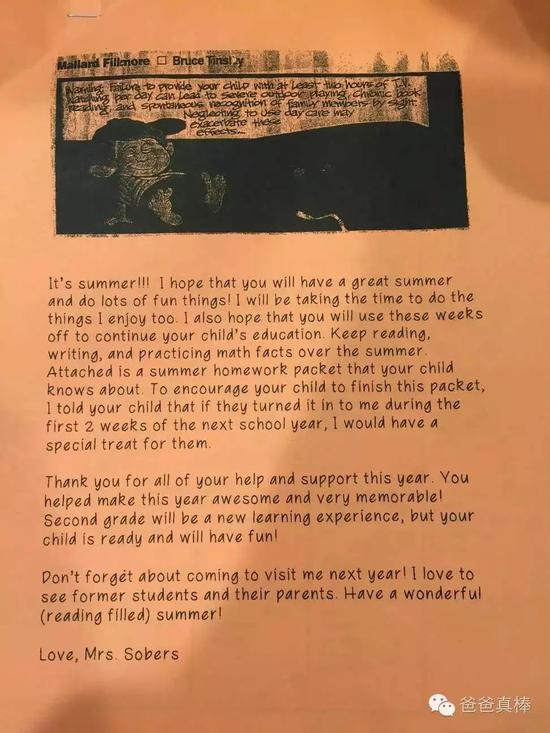 Mallard Fillmore □ Bruce Tinsley
Warning: Failure to provide your child with at least two hours of T.V.
watching per day can lead to severe outdoor playing, chronic book
reading, and spontaneous recognition of family members by sight.
Neglecting to use day care may
exacerbate these
effects...
It's summer!!! I hope that you will have a great summer
and do lots of fun things! I will be taking the time to do the
things I enjoy too. I also hope that you will use these weeks
off to continue your child's education. Keep reading,
writing, and practicing math facts over the summer.
Attached is a summer homework packet that your child
knows about. To encourage your child to finish this packet,
I told your child that if they turned it in to me during the
first 2 weeks of the next school year, I would have a
special treat for them.
Thank you for all of your help and support this year. You
helped make this year awesome and very memorable!
Second grade will be a new learning experience, but your
child is ready and will have fun!
Don't forget about coming to visit me next year! I love to
see former students and their parents. Have a wonderful
(reading filled) summer!
Love, Mrs. Sobers
爸爸真棒